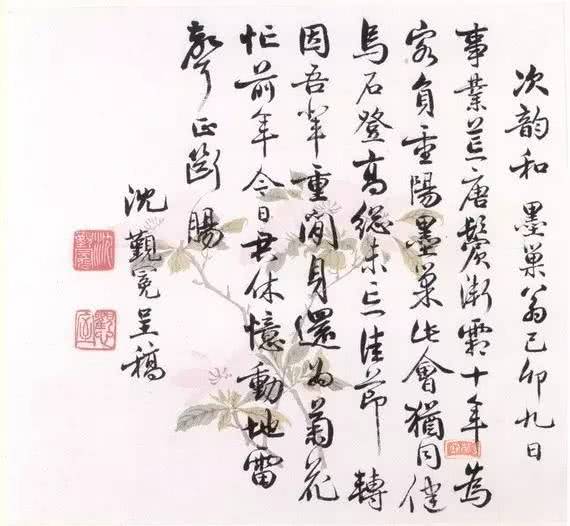 次韵和 墨巢翁己卯九日
事業荒唐鬢漸霜十年為
客負重陽墨巢此會猶同健
烏石登高總未忘佳節轉
因吾輩重閒身還為菊花
忙前年今日君休憶動地雷
聲正斷腸
沈覲冕呈稿